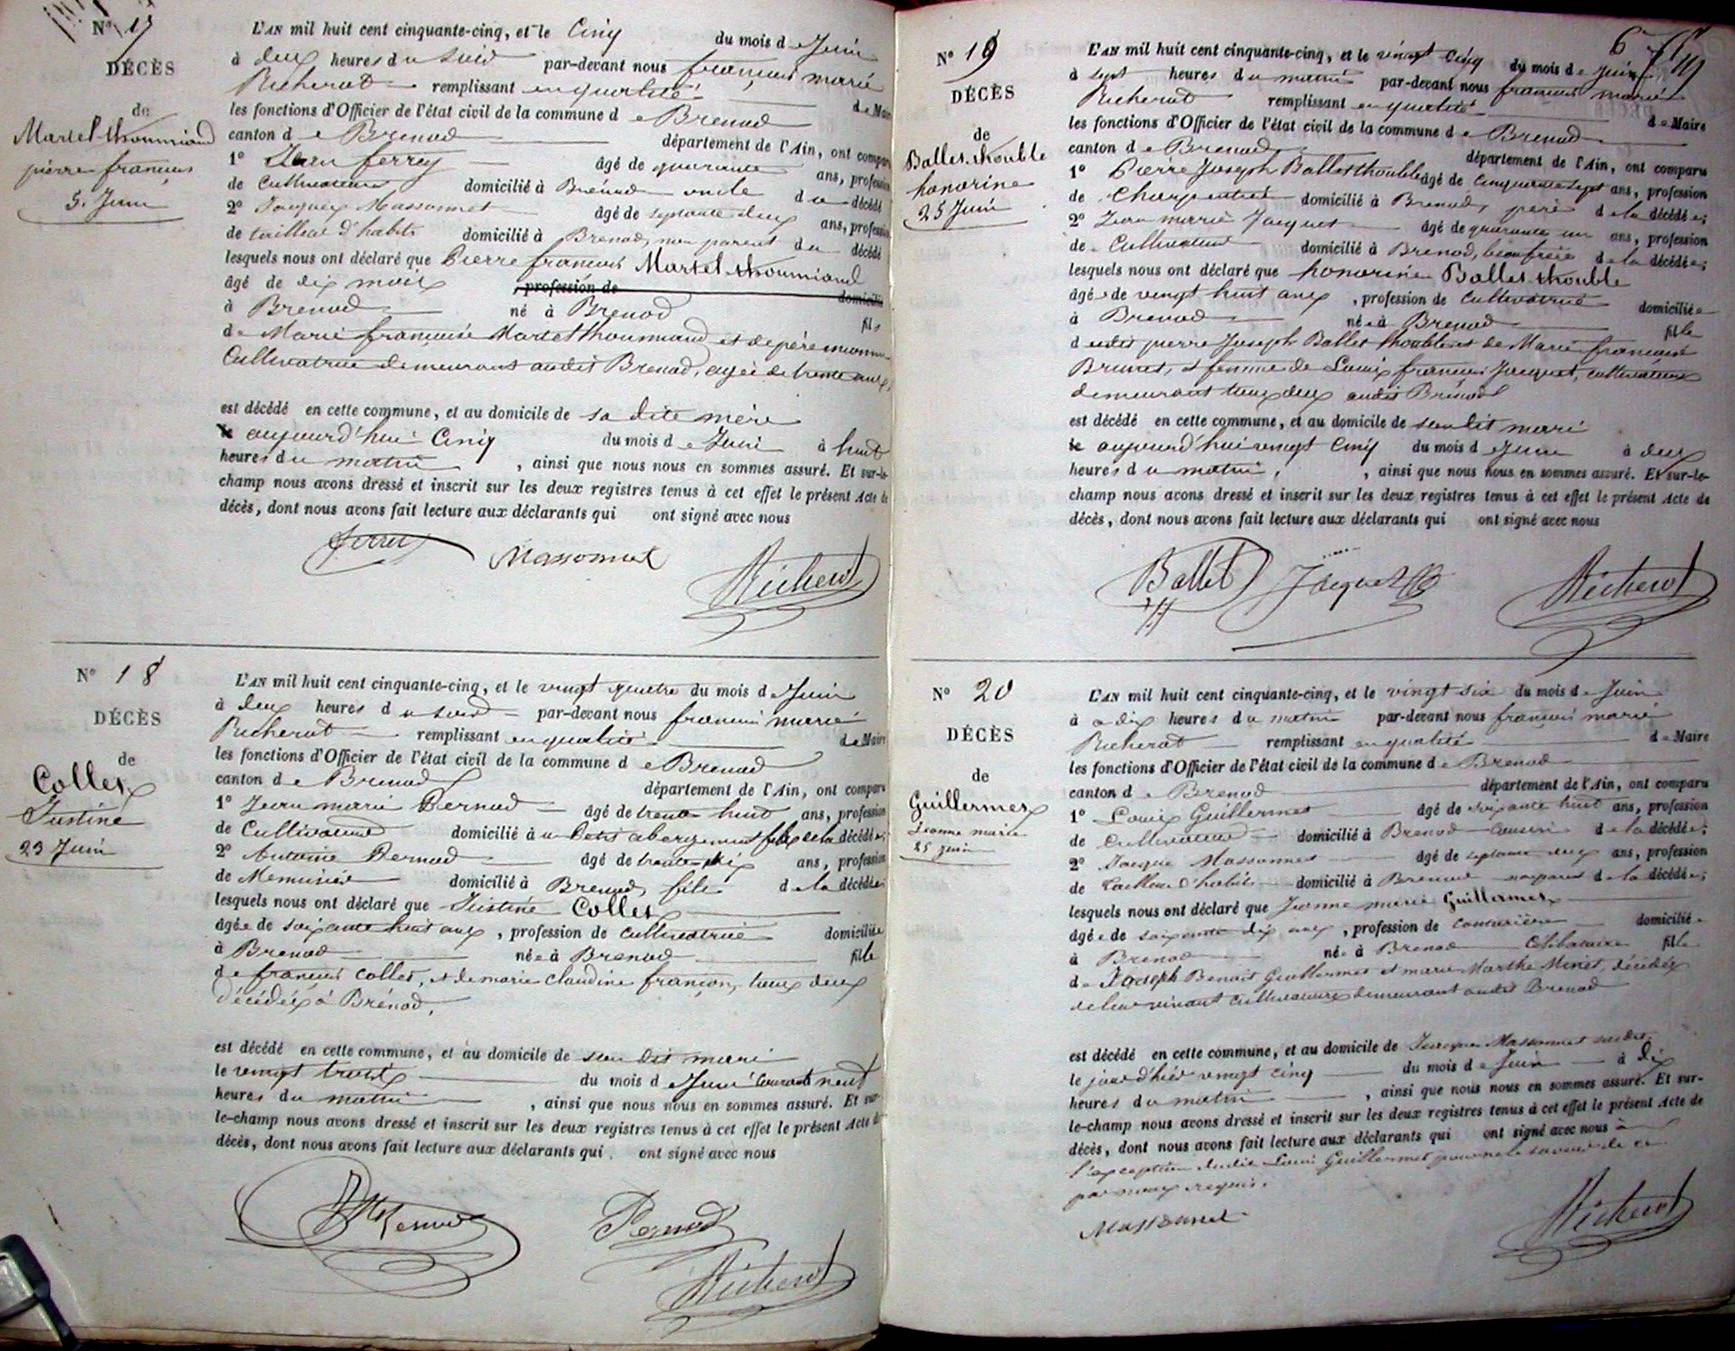 N° 17
DÉCÈS
de
Martel-thoumiand
pierre françois
5. Juin
L'AN mil huit cent cinquante-cinq, et le Cinq du mois de Juin
à deux heures du soir par-devant nous françois marie
Richerot remplissant en qualité de Maire
les fonctions d'Officier de l'état civil de la commune de Brenod
canton de Brenod département de l'Ain, ont comparu
1° Jean ferrey âgé de quarante ans, profession
de Cultivateur domicilié à Brénod oncle du décédé
2° Jacques Massonnet âgé de septante deux ans, profession
de tailleur d'habits domicilié à Brenod, non parent du décédé
lesquels nous ont déclaré que Pierre françois Martel thoumiand
âgé de dix mois , profession de domicilié
à Brenod né à Brenod fils
de Marie françoise Martel thoumiand et de père inconnu
Cultivatrice demeurant audit Brenod, agée de trente ans
est décédé en cette commune, et au domicile de sa dite mère
le aujourd'hui Cinq du mois de Juin à huit
heures du matin , ainsi que nous nous en sommes assuré. Et sur-le-
champ nous avons dressé et inscrit sur les deux registres tenus à cet effet le présent Acte de
décès, dont nous avons fait lecture aux déclarants qui ont signé avec nous
Ferrey Massonnet Richerot
N° 18
DÉCÈS
de
Collet
Justine
23 Juin
L'AN mil huit cent cinquante-cinq, et le vingt quatre du mois de Juin
à deux heures du soir par-devant nous françois marie
Richerot remplissant en qualité de Maire
les fonctions d'Officier de l'état civil de la commune de Brenod
canton de Brenod département de l'Ain, ont comparu
1° Jean marie Bernod âgé de trente huit ans, profession
de Cultivateur domicilié à u Petit abergement fils de la décédée;
2° Antoine Bernod âgé de trente six ans, profession
de Menuisier domicilié à Brenod, fils de la décédée;
lesquels nous ont déclaré que Justine Collet
âgée de soixante huit ans , profession de cultivatrice domiciliée
à Brenod née à Brenod fille
de françois Collet, et de marie claudine françon, tous deux
décédés à Brénod,
est décédé en cette commune, et au domicile de son dit mari
le vingt trois du mois de Juin courant neuf
heures du matin , ainsi que nous nous en sommes assuré. Et sur-
le-champ nous avons dressé et inscrit sur les deux registres tenus à cet effet le présent Acte de
décès, dont nous avons fait lecture aux déclarants qui ont signé avec nous
Bernod Richerot
N° 19
DÉCÈS
de
Ballet-thouble
honorine
25 Juin
6
L'AN mil huit cent cinquante-cinq, et le vingt cinq du mois de Juin
à sept heures du matin par-devant nous françois marie
Richerot remplissant en qualité de Maire
les fonctions d'Officier de l'état civil de la commune de Brenod
canton de Brenod département de l'Ain, ont comparu
1° Pierre Joseph Ballet thouble âgé de cinquante sept ans, profession
de Charpentier domicilié à Brenod, père de la décédée;
2° Jean marie Jacquet âgé de quarante un ans, profession
de Cultivateur domicilié à Brenod, beaufrère de la décédée;
lesquels nous ont déclaré que honorine Ballet thouble
âgée de vingt huit ans , profession de Cultivatrice domiciliée
à Brenod née à Brenod fille
dudit pierre Joseph Ballet thouble et de Marie françoise
Brunet, et femme de Louis françois Jacquet, cultivateurs
demeurant tous deux audit Brénod
est décédé en cette commune, et au domicile de son dit mari
le aujourd'hui vingt Cinq du mois de Juin à deux
heures du matin , , ainsi que nous nous en sommes assuré. Et sur-le-
champ nous avons dressé et inscrit sur les deux registres tenus à cet effet le présent Acte de
décès, dont nous avons fait lecture aux déclarants qui ont signé avec nous
Ballet Jacquet Richerot
N° 20
DÉCÈS
de
Guillermet
Jeanne marie
25 juin
L'AN mil huit cent cinquante-cinq, et le vingt six du mois de Juin
à dix heures du matin par-devant nous françois marie
Richerot remplissant en qualité de Maire
les fonctions d'Officier de l'état civil de la commune de Brenod
canton de Brenod département de l'Ain, ont comparu
1° Louis Guillermet âgé de soixante huit ans, profession
de Cultivateur domicilié à Brenod cousin de la décédée;
2° Jacque Massonnet âgé de septante deux ans, profession
de tailleur d'habits domicilié à Brenod non parent de la décédée;
lesquels nous ont déclaré que Jeanne marie Guillermet
âgée de soixante dix ans , profession de couturière domiciliée
à Brenod née à Brenod Célibataire fille
de Joseph Benoit Guillermet et marie Marthe Minet, décédés
de leur vivant cultivateurs demeurant audit Brenod
est décédé en cette commune, et au domicile de Jacques Massonnet susdit
le jour d'hier vingt cinq du mois de Juin à dix
heures du matin , ainsi que nous nous en sommes assuré. Et sur-
le-champ nous avons dressé et inscrit sur les deux registres tenus à cet effet le présent Acte de
décès, dont nous avons fait lecture aux déclarants qui ont signé avec nous à
l'exception dudit Louis Guillermet pour ne le savoir de ce
par nous requis.
Massonnet Richerot